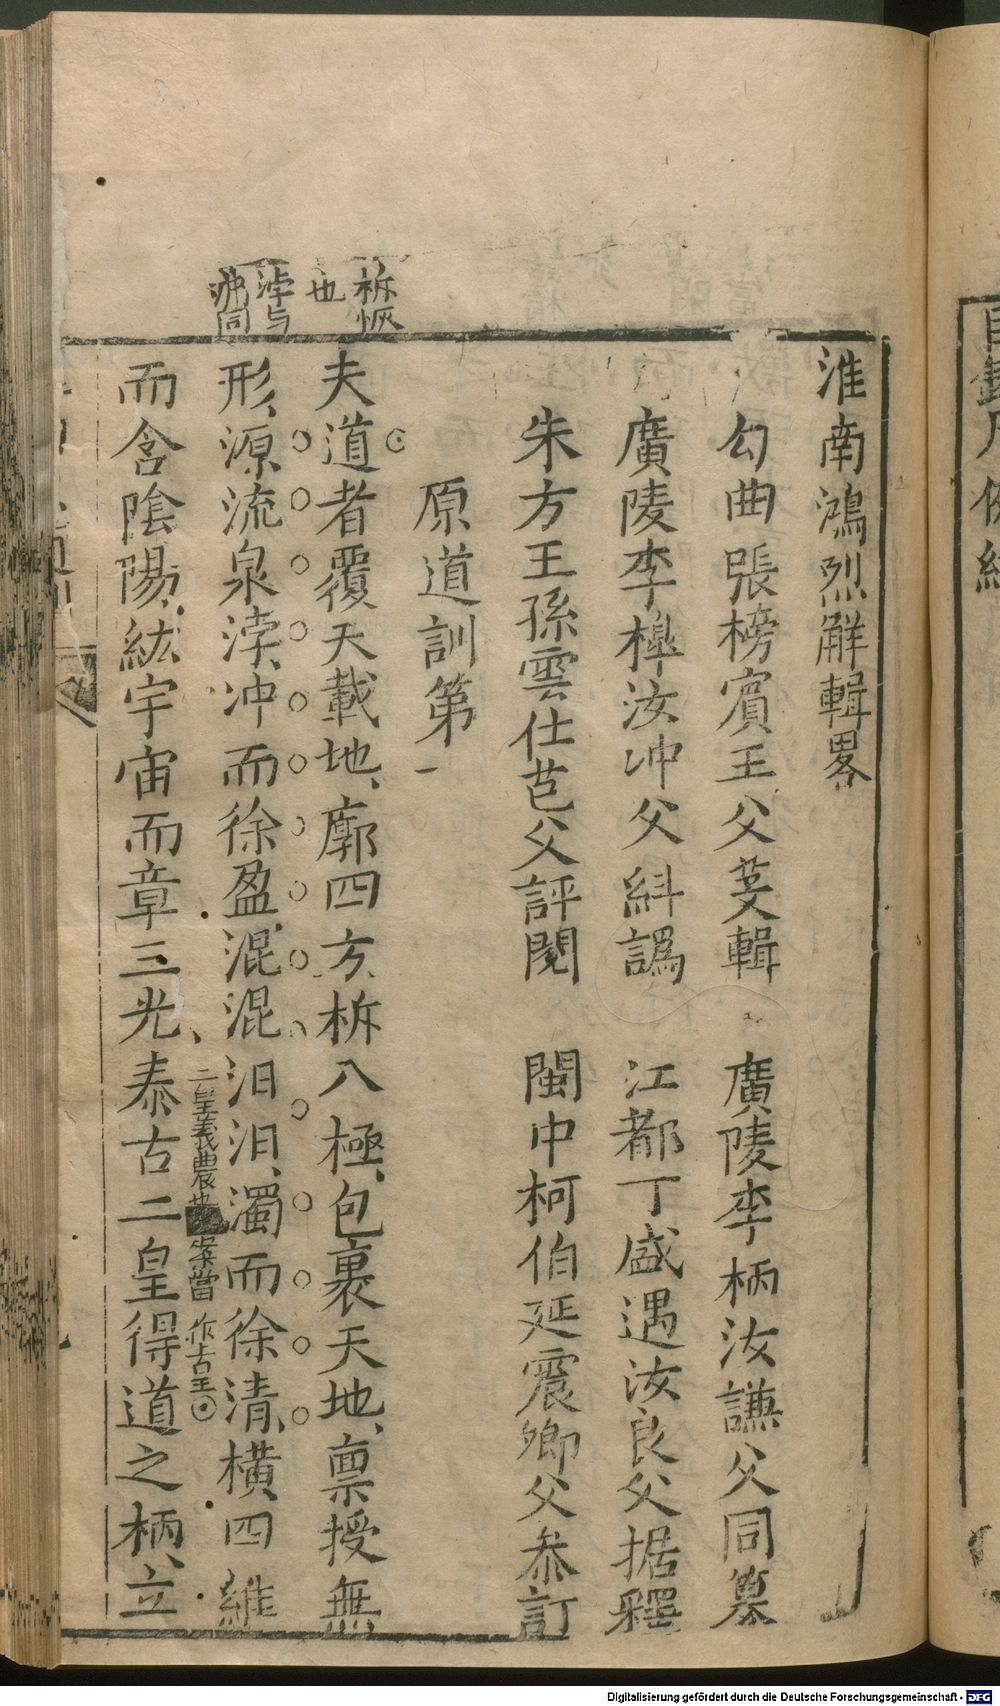 淮南鴻烈解輯畧
勾曲張榜賓王父芟輯　廣陵李柄汝謙父同纂
廣陵李槹汝冲父糾譌　江都丁盛遇汝良父据釋
朱方王孫雲仕芑父評閱　閩中柯伯延震卿父叅訂
原道訓第一
柝恢也
夫道者覆天載地、廓四方、柝八極、包裹天地、禀授無
浡与沸同
形、源流泉浡、冲而徐盈、混混汩汩、濁而徐清、橫四維
二皇羲農也 案當作古王
而含陰陽、紘宇宙而章三光、泰古二皇得道之柄、立
Digitalisierung gefördert durch die Deutsche Forschungsgemeinschaft - DFG